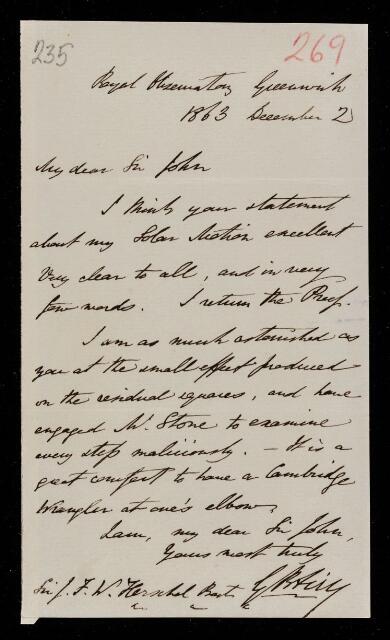 235
269
Royal Observatory Greenwich
1863 December 2
My dear Sir John
I think your statement
about my Solar Motion excellent
Very clear to all, and in very
few words. I return the Proof.
I am as much astonished as
you at the small effect produced
on the residual squares, and have
engaged Mr. Stone to examine
every step maliciously. - It is a
great comfort to have a Cambridge
Wrangler at one's elbow.
I am, my dear Sir John,
Yours most truly
G B Airy
Sir J. F. W. Herschel Bart